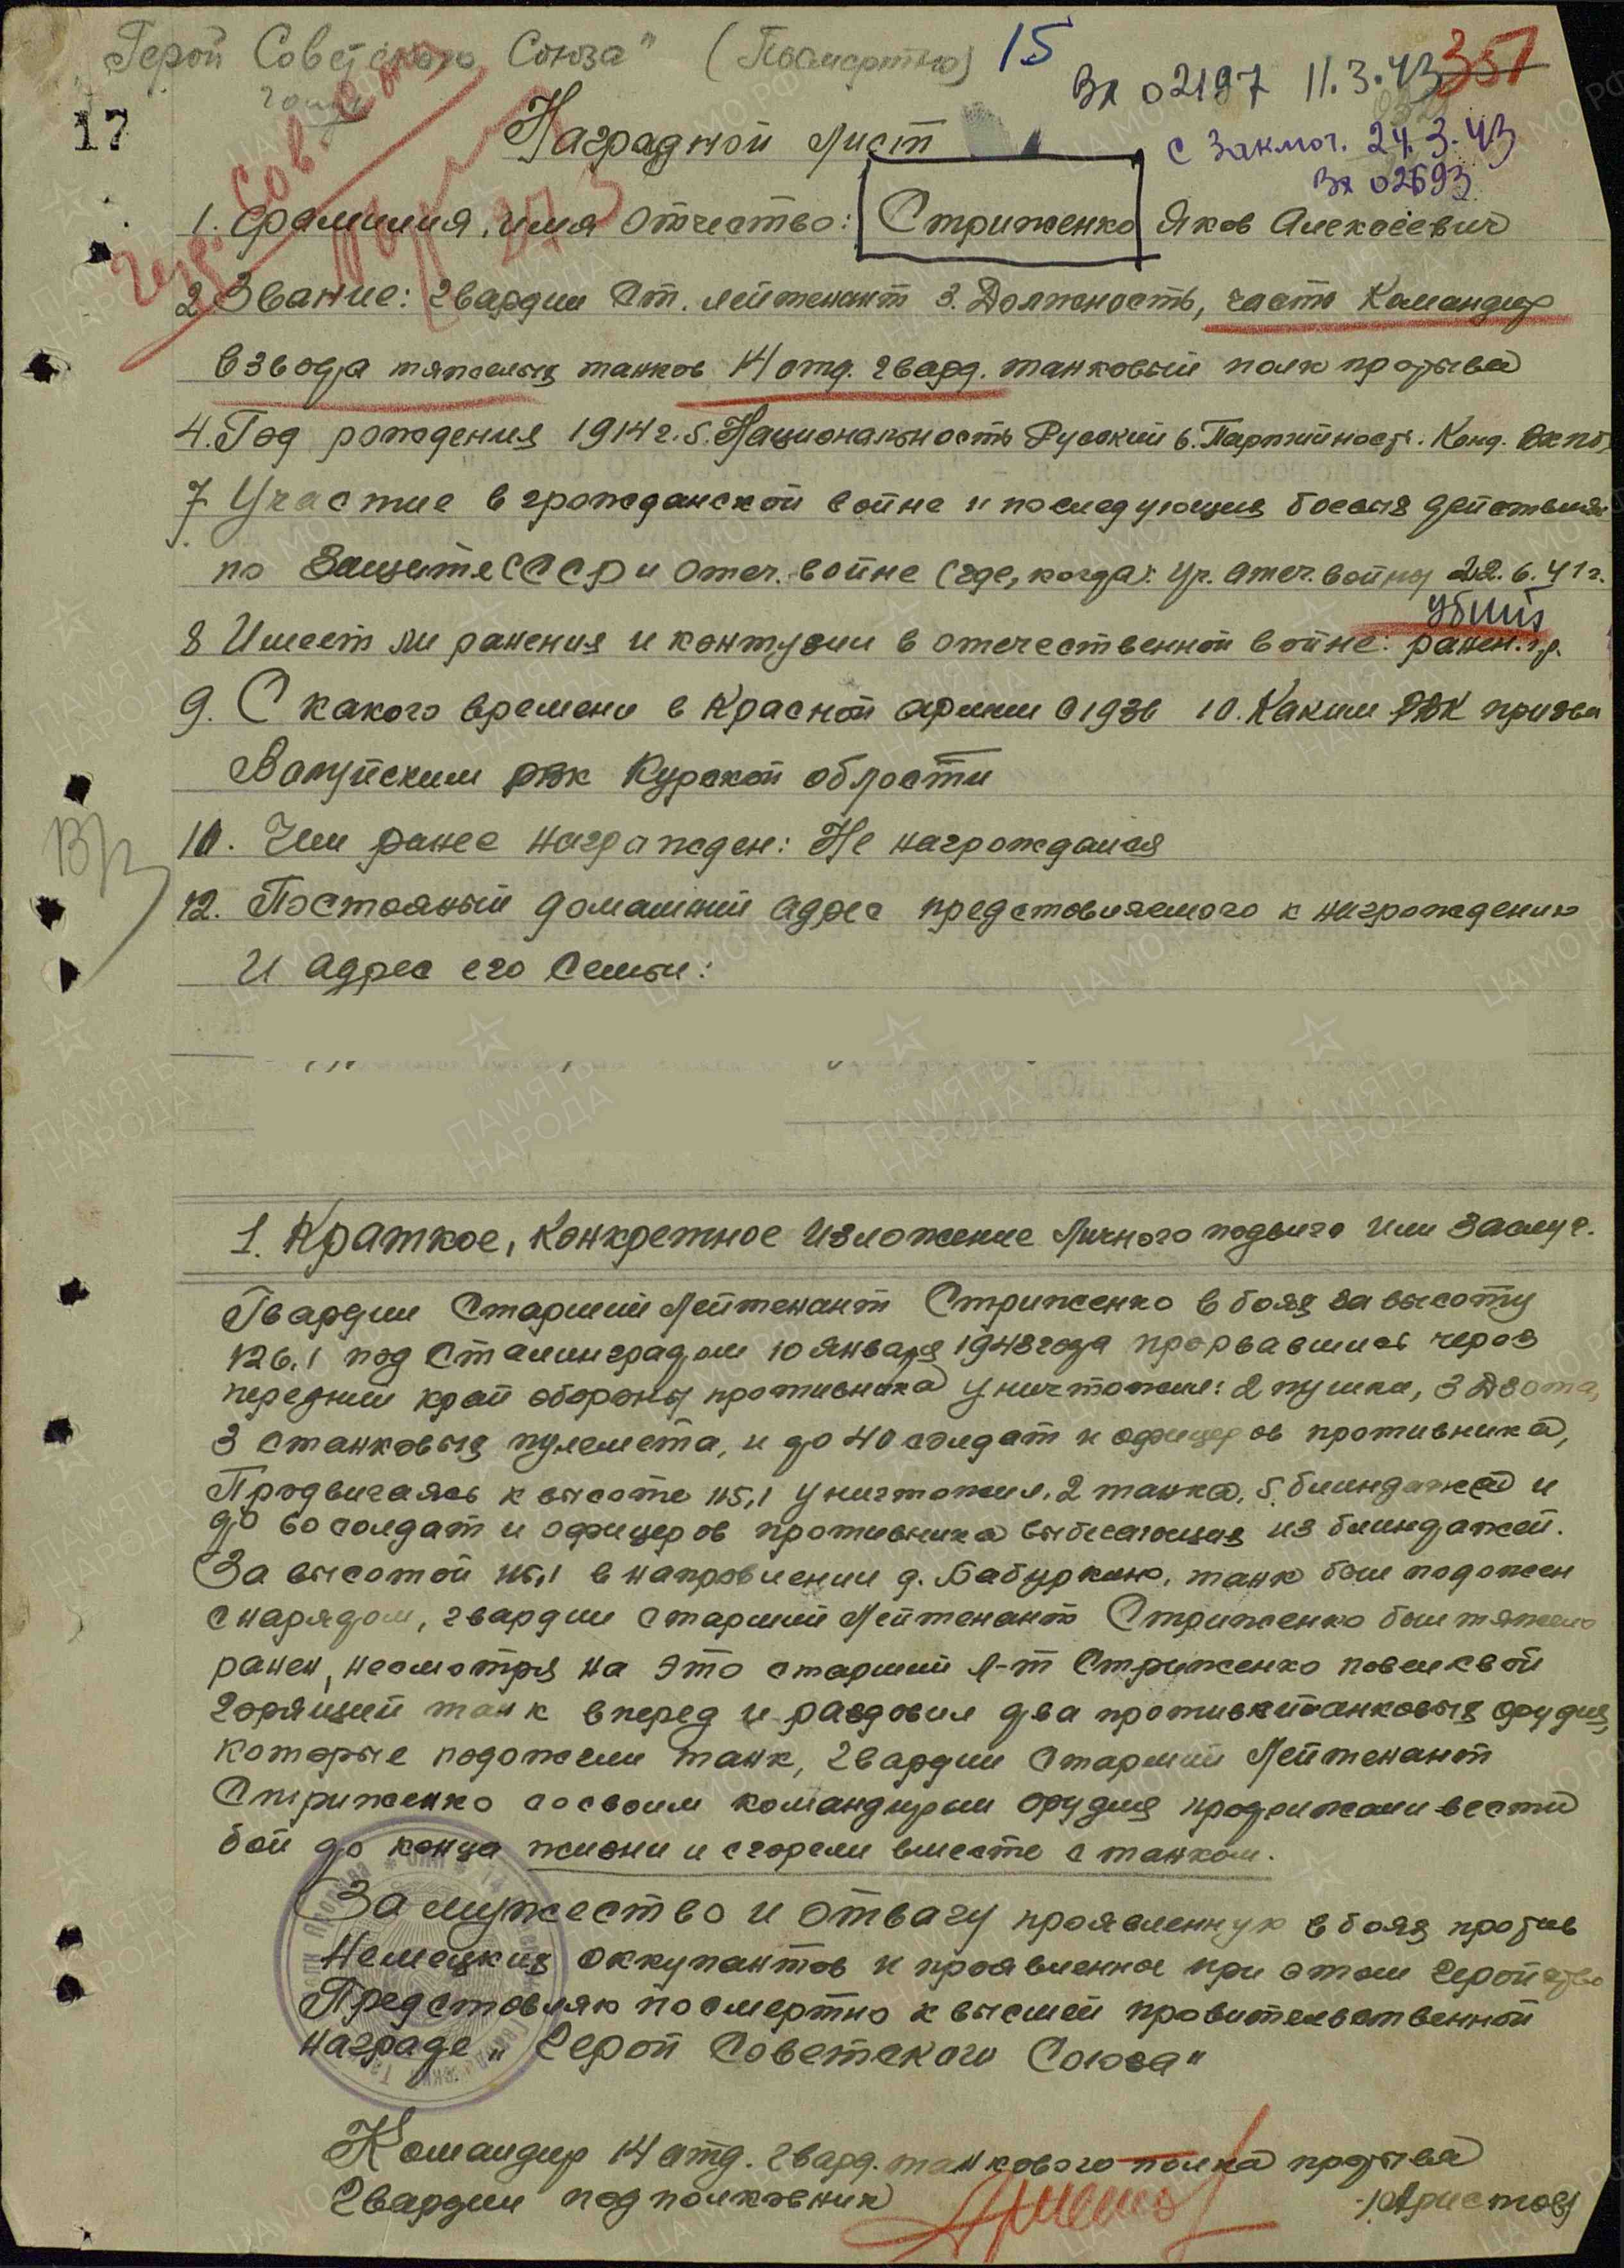 „Герой Советского Союза" (Посмертно) 15
Вх 02197 11.3.43 351
17
Наградной лист
с Заключ. 24.3.43
Вх 02693
1. Фамилия, имя Отчество: Стриженко Яков Алексеевич
2 Звание: Гвардии Ст. лейтенант 3. Должность, часть Командир
взвода тяжелых танков 14 отд. гвард. танковый полк прорыва
4. Год рождения 1914 г. 5. Национальность Русский 6. Партийность. Канд. ВКПб,
7 Участие в гражданской войне и последующих боевых действиях
по защите СССР и Отеч. войне (где, когда): Уч. Отеч. войны 22.6.41 г.
убит
8 Имеет ли ранения и контузии в отечественной войне: ранен.
9. С какого времени в Красной армии С 1936 10. Каким РВК призван
Валуйским РВК Курской области
10. Чем ранее награжден: Не награждался
12. Постояный домашний адрес представляемого к награждению
И адрес его Семьи:
1. Краткое, Конкретное Изложение Личного подвига или Заслуг.
Гвардии Старший Лейтенант Стриженко в боях за высоту
126,1 под Сталинградом 10 января 1943 года прорвавшись через
передний край обороны противника уничтожил: 2 пушки, 3 Дзота,
3 станковых пулемета, и до 40 солдат и офицеров противника,
Продвигаясь к высоте 115,1 уничтожил. 2 танка, 5 блиндажей и
до 60 солдат и офицеров противника выбегающих из блиндажей.
За высотой 115,1 в направлении д. Бабуркино, танк был подожен
снарядом, гвардии старший Лейтенант Стриженко был тяжело
ранен, несмотря на это старший л-т Стриженко повел свой
горящий танк вперед и раздовил два противотанковых орудия,
которые подожгли танк, Гвардии Старший Лейтенант
Стриженко со своим командиром орудия продолжали вести
бой до конца жизни и сгорели вместе с танком.
За мужество и отвагу проявленную в боях против
Немецких оккупантов и проявленное при этом Геройство
Представляю посмертно к высшей правительственной
награде „Герой Советского Союза"
Командир 14 отд. гвард. танкового полка прорыва
Гвардии подполковник /Аристов/